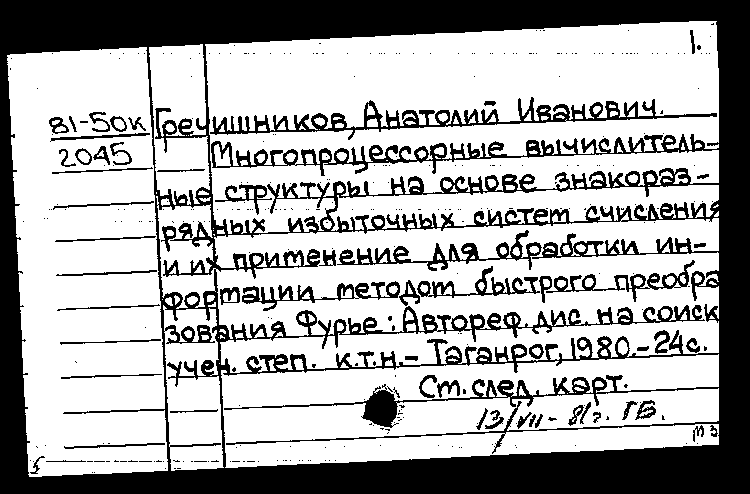 1.
81-50к Гречишников, Анатолий Иванович.
2045 Многопроцессорные вычислитель-
ные структуры на основе знакораз-
рядных избыточных систем счисления
и их применение для обработки ин-
формации методом быстрого преобра
зования Фурье: Автореф. дис. на соиск
учен. степ. к.т.н. – Таганрог, 1980. – 24с.
См. след. карт.
13/VII - 81г. ГБ.